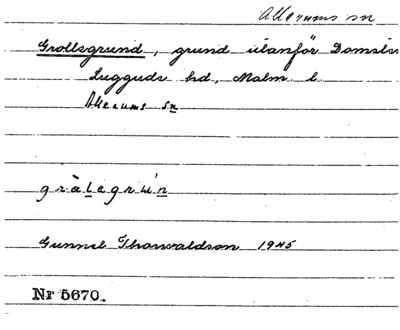 Allerums sn
Grollsgrund, grund utanför Domsten
Luggude hd, Malm. l.
Allerums sn
gràlegru'n
Gunnel Thorvaldson 1945
Nr 5670.